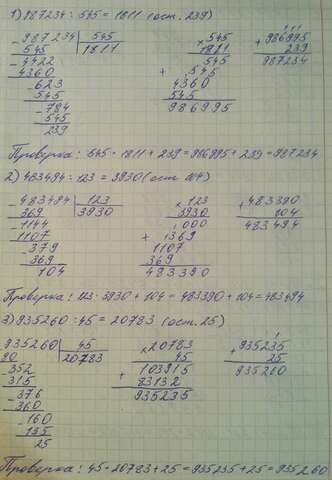 1) 987234 : 545 = 1811 (ост. 239)
- 987234 | 545
545 | 1811
- 4422
4360
- 623
545
- 784
545
239
× 545
1811
545
+ 545
4360
545
986995
+ 986995
239
987234
Проверка: 545 · 1811 + 239 = 986995 + 239 = 987234
2) 483494 : 123 = 3930 (ост 104)
- 483494 | 123
369 | 3930
- 1144
1107
- 379
369
104
× 123
3930
000
+ 369
1107
369
483390
+ 483390
104
483494
Проверка: 123 · 3930 + 104 = 483390 + 104 = 483494
3) 935260 : 45 = 20783 (ост. 25)
935260 | 45
90 | 20783
- 352
315
- 376
360
- 160
135
25
× 20783
45
+ 103915
83132
935235
+ 935235
25
935260
Проверка: 45 · 20783 + 25 = 935235 + 25 = 935260